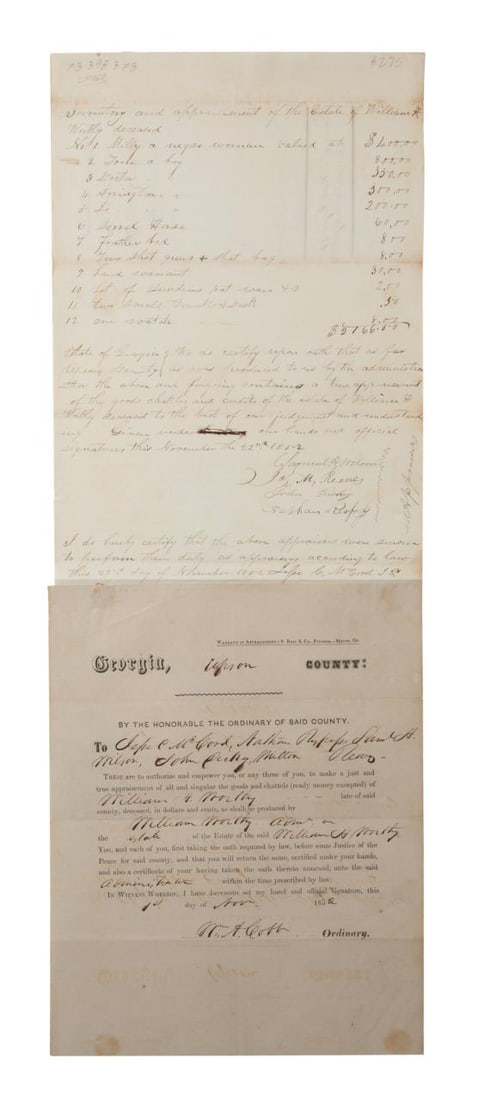 $275
Inventory and appraisment of the Estate of William H
Worthy deceased
No 1 Milly a negro woman valued at
2 a boy 800.00
3 350.00
4 300.00
5 200.00
6 Sorrel Horse 60.00
7 Feather bed 8.00
8 Two Shot guns + shot bag 8.00
9 Land warrant 30.00
10 Lot of 2.00
11 two Small Trunks & Desk .50
12 one watch 8.00
State of Georgia We do certify upon oath that as far
Upson County as was produced to us by the administra
tor the above and forgoing contains a true appraisment
of the goods chattles and credits of the estate of William H
Worthy deceased to the best of our judgement and understand
ing Given under our hands and official
signatures this November the 22nd 1852
M, Reeves
John
Appraisers
I do hereby certify that the above appraisers were sworn
to perform their duty as appraisers according to law
this 22nd day of November 1852 C. McCord
WARRANT OF APPRAISEMENT—
Georgia, Upson COUNTY:
BY THE HONORABLE THE ORDINARY OF SAID COUNTY.
To C McCord, Nathan Samuel H.
Wilson, John Milton Reeves
THESE are to authorize and empower you, or any three of you, to make a just and
true appraisement of all and singular the goods and chattels (ready money excepted) of
William H. Worthy late of said
county, deceased, in dollars and cents, as shall be produced by
William Worthy Admr. on
the estate of the Estate of the said William H Worthy
You, and each of you, first taking the oath required by law, before some Justice of the
Peace for said county, and that you will return the same, certified under your hands,
and also a certificate of your having taken the oath thereto annexed, unto the said
Administrator within the time prescribed by law:
IN WITNESS WHEREOF, I have hereunto set my hand and official Signature, this
1st day of Nov. 1852
Wm. A. Cobb Ordinary.